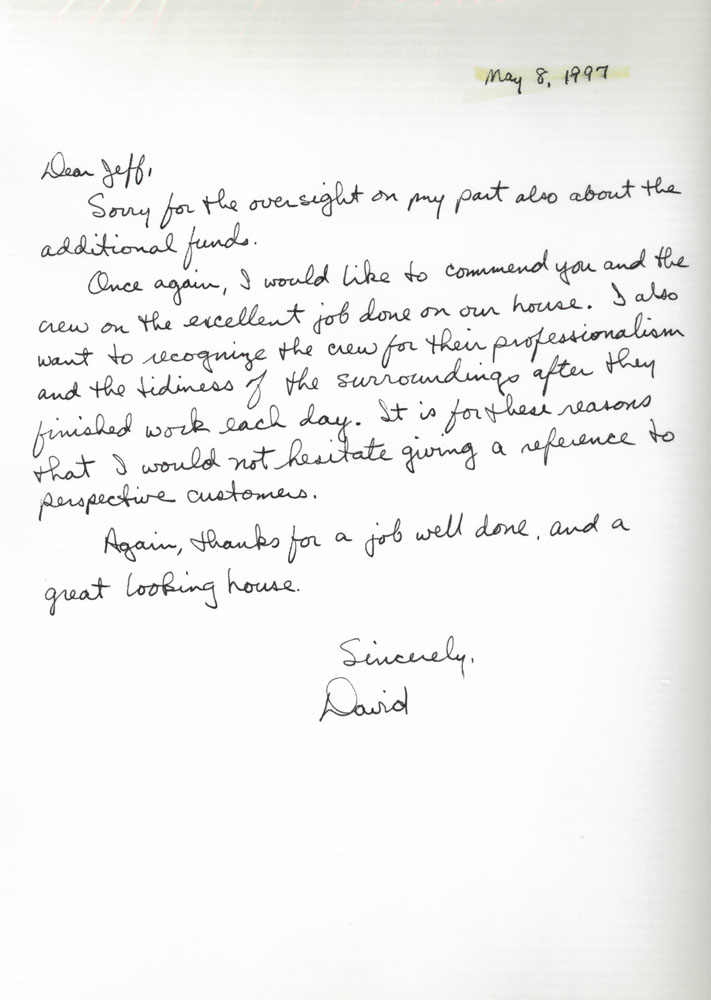 May 8, 1997
Dear Jeff,
Sorry for the oversight on my part also about the
additional funds.
Once again, I would like to commend you and the
crew on the excellent job done on our house. I also
want to recognize the crew for their professionalism
and the tidiness of the surroundings after they
finished work each day. It is for these reasons
that I would not hesitate giving a reference to
perspective customers.
Again, thanks for a job well done, and a
great looking house.
Sincerely,
David